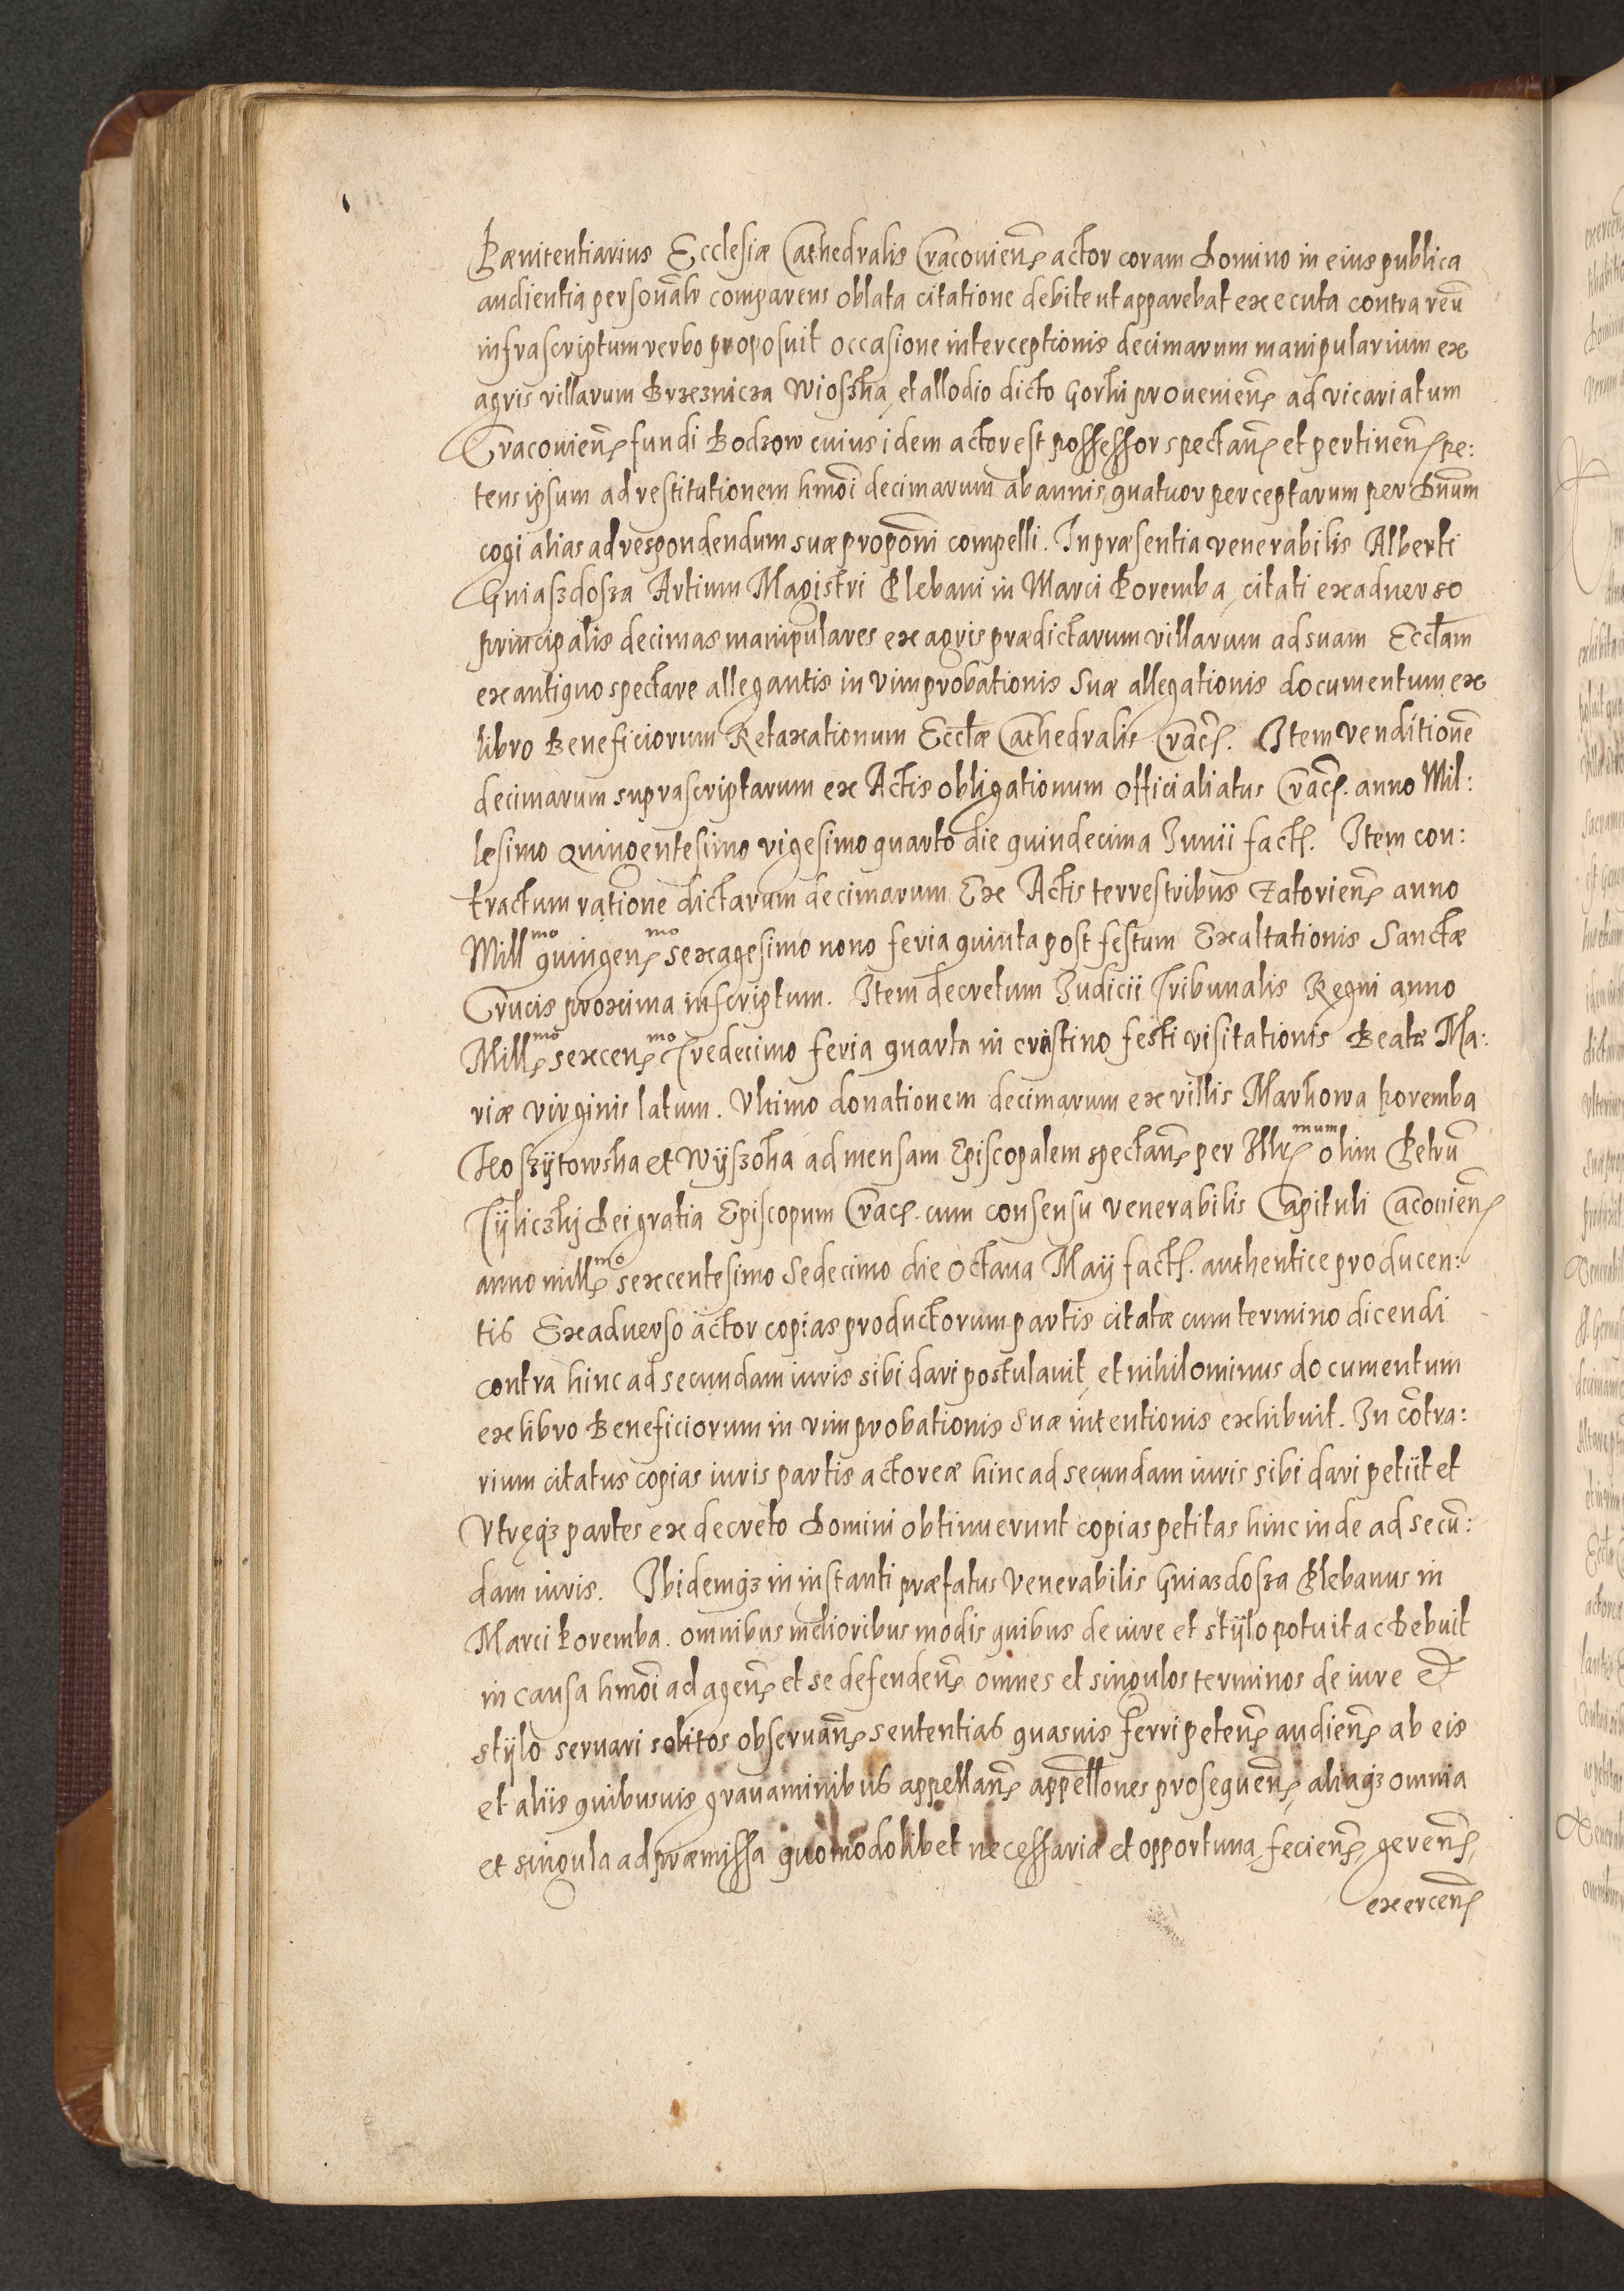 Pænitentiarius Ecclesiæ Cathedralis Cracouien̄ꝭ actor coram Domino in eius publica
audientia personal̄r comparens oblata citatione debite ut apparebat executa contra reū
infrascriptum verbo proposuit occasione interceptionis decimarum manipularium ex
agris villarum Brzeznicza Wioszka, et allodio dicto Gorki prouenien̄ꝭ ad vicariatum
Cracouien̄ꝭ fundi Bodzow cuius idem actor est possessor spectan̄ꝭ et pertinen̄ꝭ pe:
tens ipsum ad restitutionem hmōi decimarum ab annis quatuor perceptarum per Dn̄um
cogi alias ad respondendum suæ propōni compelli. In præsentia venerabilis Alberti
Gniaszdosza Artium Magistri Plebani in Marci Poremba, citati ex aduerso
principalis decimas manipulares ex agris prædictarum villarum ad suam Eccl̄am
ex antiquo spectare allegantis in vim probationis suæ allegationis documentum ex
libro Beneficiorum Retaxationum Eccl̄æ Cathedralis Crac̄ꝭ. Item venditionē
decimarum suprascriptarum ex Actis obligationum officialiatus Crac̄ꝭ. anno Mil:
lesimo quingentesimo vigesimo quarto die quindecima Junii factꝭ. Item con:
tractum ratione dictarum decimarum Ex Actis terrestribus Zatorien̄ꝭ anno
Millmo quingenꝭmo sexagesimo nono feria quinta post festum Exaltationis Sanctæ
Crucis proxima inscriptum. Item decretum Judicii Tribunalis Regni anno
Millꝭmo sexcenꝭmo Tredecimo feria quarta in crastino festi visitationis Beatæ Ma:
riæ virginis latum. Vltimo donationem decimarum ex villis Markowa poremba
Koszÿtowska et Wÿszoka ad mensam Episcopalem spectan̄ꝭ per Illrꝭmum olim Petrū
Tÿliczkij Dei gratia Episcopum Cracꝭ. cum consensu venerabilis Capituli Caconien̄ꝭ
anno millꝭmo sexcentesimo Sedecimo die octaua Maÿ factꝭ. authentice producen:
tis Ex aduerso actor copias productorum partis citatæ cum termino dicendi
contra hinc ad secundam iuris sibi dari postulauit, et nihilominus documentum
ex libro Beneficiorum in vim probationis suæ intentionis exhibuit. In cōtra:
rium citatus copias iuris partis actoreæ hinc ad secundam iuris sibi dari petiit et
Vtręqꝫ partes ex decreto Domini obtinuerunt copias petitas hinc inde ad secū:
dam iuris. Ibidemqꝫ in instanti præfatus Venerabilis Gniazdosza Plebanus in
Marci Poremba. omnibus melioribus modis quibus de iure et stÿlo potuit ac Debuit
in causa hmōi ad agen̄ꝭ et se defenden̄ꝭ omnes et singulos terminos de iure et
stÿlo seruari solitos obseruan̄ꝭ sententias quasuis ferri peten̄ꝭ audien̄ꝭ ab eis
et aliis quibusuis grauaminibus appellan̄ꝭ appellōnes prosequen̄ꝭ, aliaqꝫ omnia
et singula ad præmissa quomodolibet necessaria et opportuna, fecien̄ꝭ, geren̄ꝭ,
exercen̄ꝭ